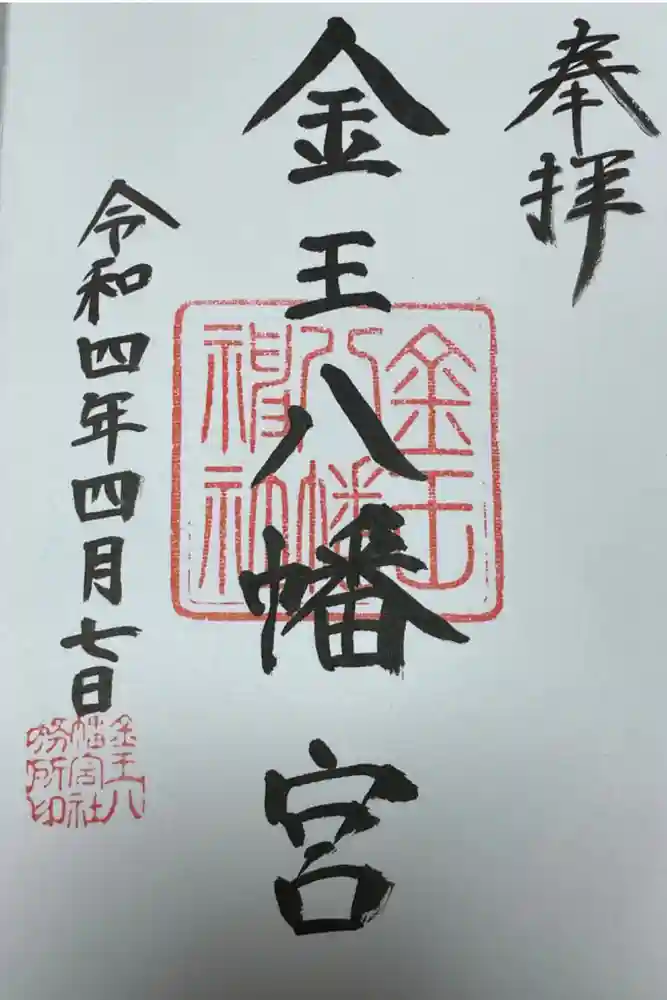 奉拝
金王八幡宮
令和四年四月七日
金王八幡神社
金王八幡宮社務所印